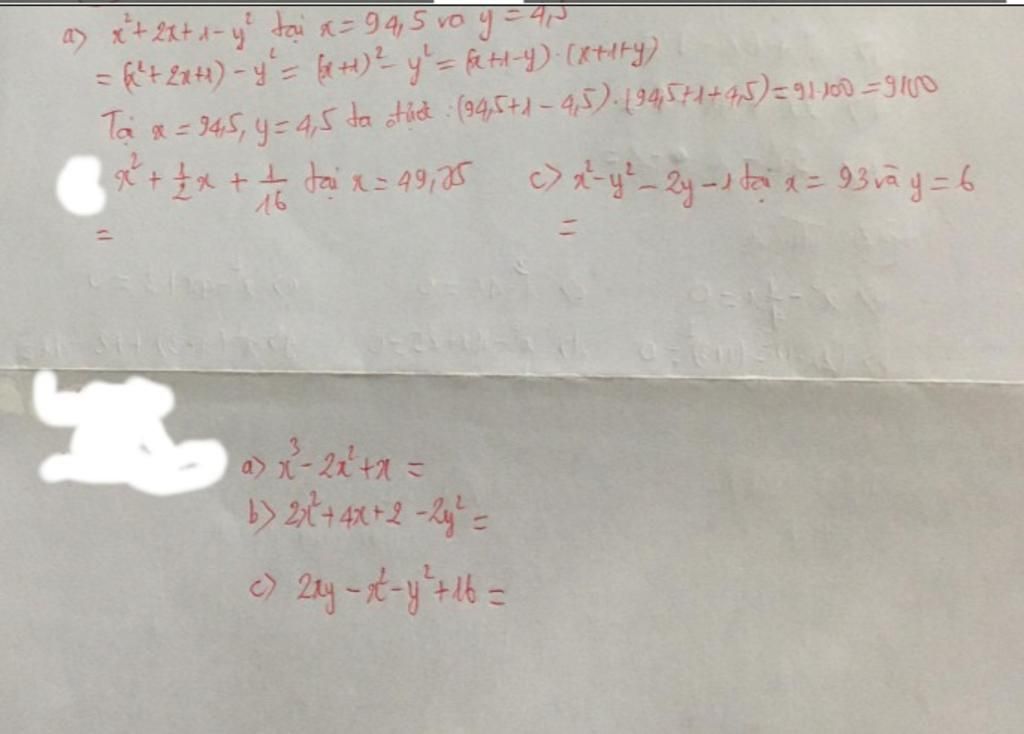 a) x² + 2x + 1 - y² tại x = 94,5 và y = 4,5
= (x² + 2x + 1) - y² = (x+1)² - y² = (x+1-y).(x+1+y)
Tại x = 94,5, y = 4,5 ta được: (94,5+1-4,5).(94,5+1+4,5) = 91.100 = 9100
x² + 1/2 x + 1/16 tại x = 49,75 c) x² - y² - 2y - 1 tại x = 93 và y = 6
= =
a) x³ - 2x² + x =
b) 2x² + 4x + 2 - 2y² =
c) 2xy - x² - y² + 16 =